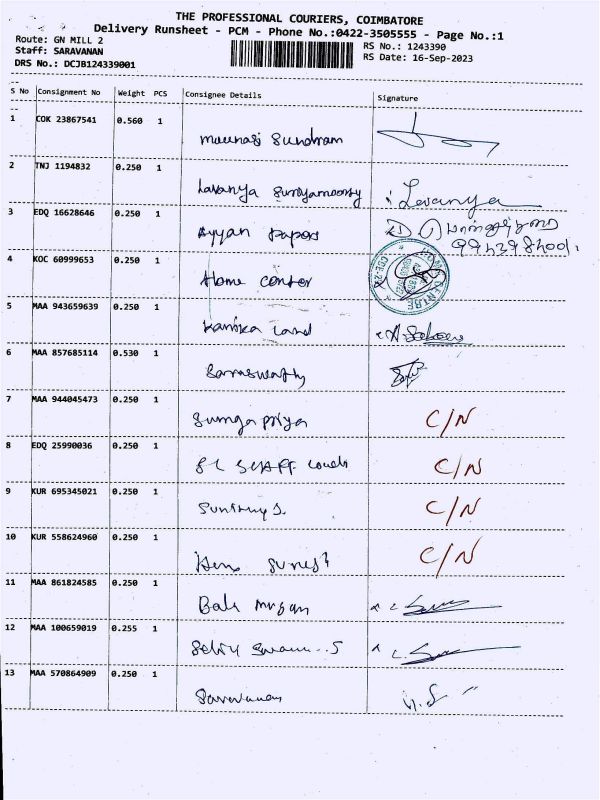 THE PROFESSIONAL COURIERS, COIMBATORE
Delivery Runsheet - PCM - Phone No.:0422-3505555 - Page No.:1
Route: GN MILL 2
RS No.: 1243390
Staff: SARAVANAN
RS Date: 16-Sep-2023
DRS No.: DCJB124339001
S No Consignment No Weight PCS Consignee Details Signature
1 COK 23867541 0.560 1
Sundram
2 TNJ 1194832 0.250 1
Lavanya Lavanya
3 EDQ 16628646 0.250 1
Ayyan papers
4 KOC 60999653 0.250 1
Home center
5 MAA 943659639 0.250 1
Kanika Land
6 MAA 857685114 0.530 1
Sarraswathy
7 MAA 944045473 0.250 1
C/N
8 EDQ 25990036 0.250 1
C/N
9 KUR 695345021 0.250 1
C/N
10 KUR 558624960 0.250 1
C/N
11 MAA 861824585 0.250 1
Bala
12 MAA 100659019 0.255 1
13 MAA 570864909 0.250 1
Saravanan